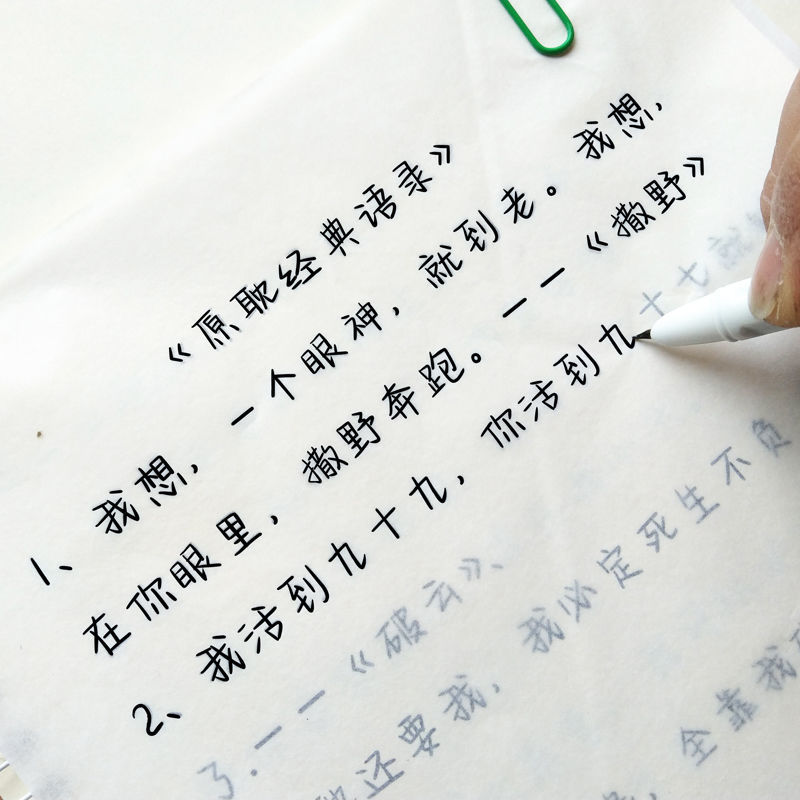 《原耽经典语录》
1、我想,一个眼神,就到老。我想,
在你眼里,撒野奔跑。——《撒野》
2、我活到九十九,你活到九十七就
——《破云》、
3.
还要我,我必定死生不负
全靠我